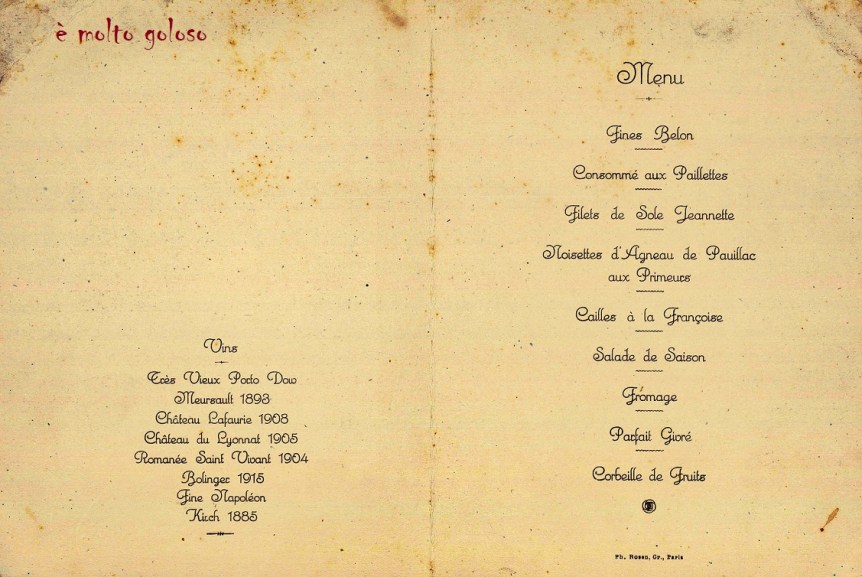 è molto goloso
Vins
Très Vieux Porto Dow
Meursault 1893
Château Lafaurie 1908
Château du Lyonnat 1905
Romanée Saint Vivant 1904
Bolinger 1915
Fine Napoléon
Kirch 1885
Menu
Fines Belon
Consommé aux Paillettes
Filets de Sole Jeannette
Noisettes d'Agneau de Pauillac
aux Primeurs
Cailles à la Françoise
Salade de Saison
Fromage
Parfait Gioré
Corbeille de Fruits
Ph. Rosen, Gr., Paris